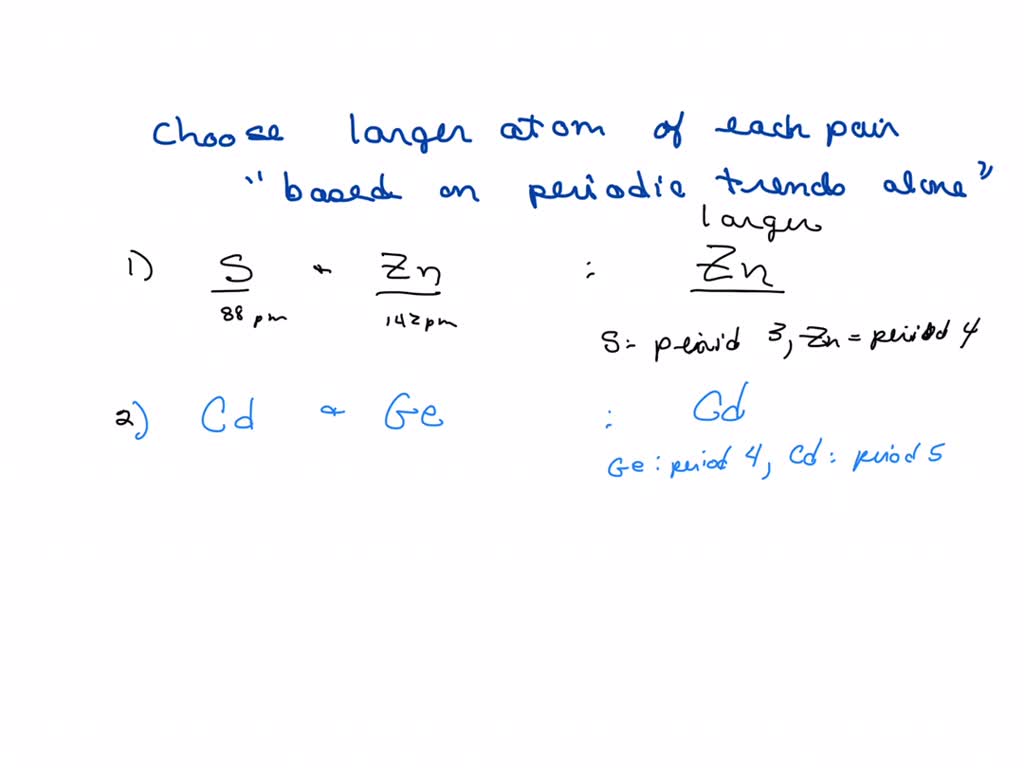 choose larger atom of each pair
"based on periodic trends alone"
larger
1) S & Zn : Zn
88 pm 142 pm
S: period 3, Zn = period 4
2) Cd & Ge : Cd
Ge : period 4, Cd : period 5